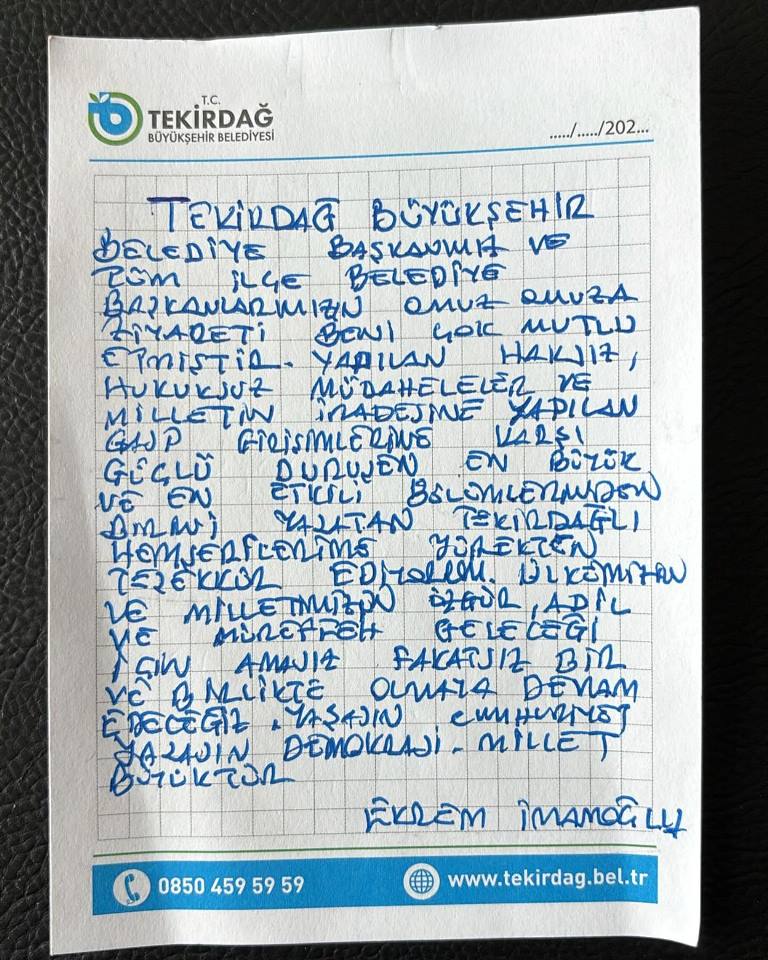 T.C.
TEKİRDAĞ
BÜYÜKŞEHİR BELEDİYESİ
...../...../202...
TEKİRDAĞ BÜYÜKŞEHİR
BELEDİYE BAŞKANIMIZ VE
TÜM İLÇE BELEDİYE
BAŞKANLARIMIZIN OMUZ OMUZA
ZİYARETİ BENİ ÇOK MUTLU
ETMİŞTİR. YAPILAN HAKSIZ,
HUKUKSUZ MÜDAHELELER VE
MİLLETİN İRADESİNE YAPILAN
GASP GİRİŞİMLERİNE KARŞI
GÜÇLÜ DURUŞUN EN BÜYÜK
VE EN ETKİLİ BÖLÜMLERİNDEN
BİRİNİ YARATAN TEKİRDAĞLI
HEMŞERİLERİME YÜREKTEN
TEŞEKKÜR EDİYORUM. ÜLKEMİZİN
VE MİLLETİMİZİN ÖZGÜR, ADİL
VE MÜREFFEH GELECEĞİ
İÇİN AMASIZ FAKATSIZ BİR
VE BİRLİKTE OLMAYA DEVAM
EDECEĞİZ. YAŞASIN CUMHURİYET
YAŞASIN DEMOKRASİ. MİLLET
BÜYÜKTÜR
EKREM İMAMOĞLU
0850 459 59 59
www.tekirdag.bel.tr